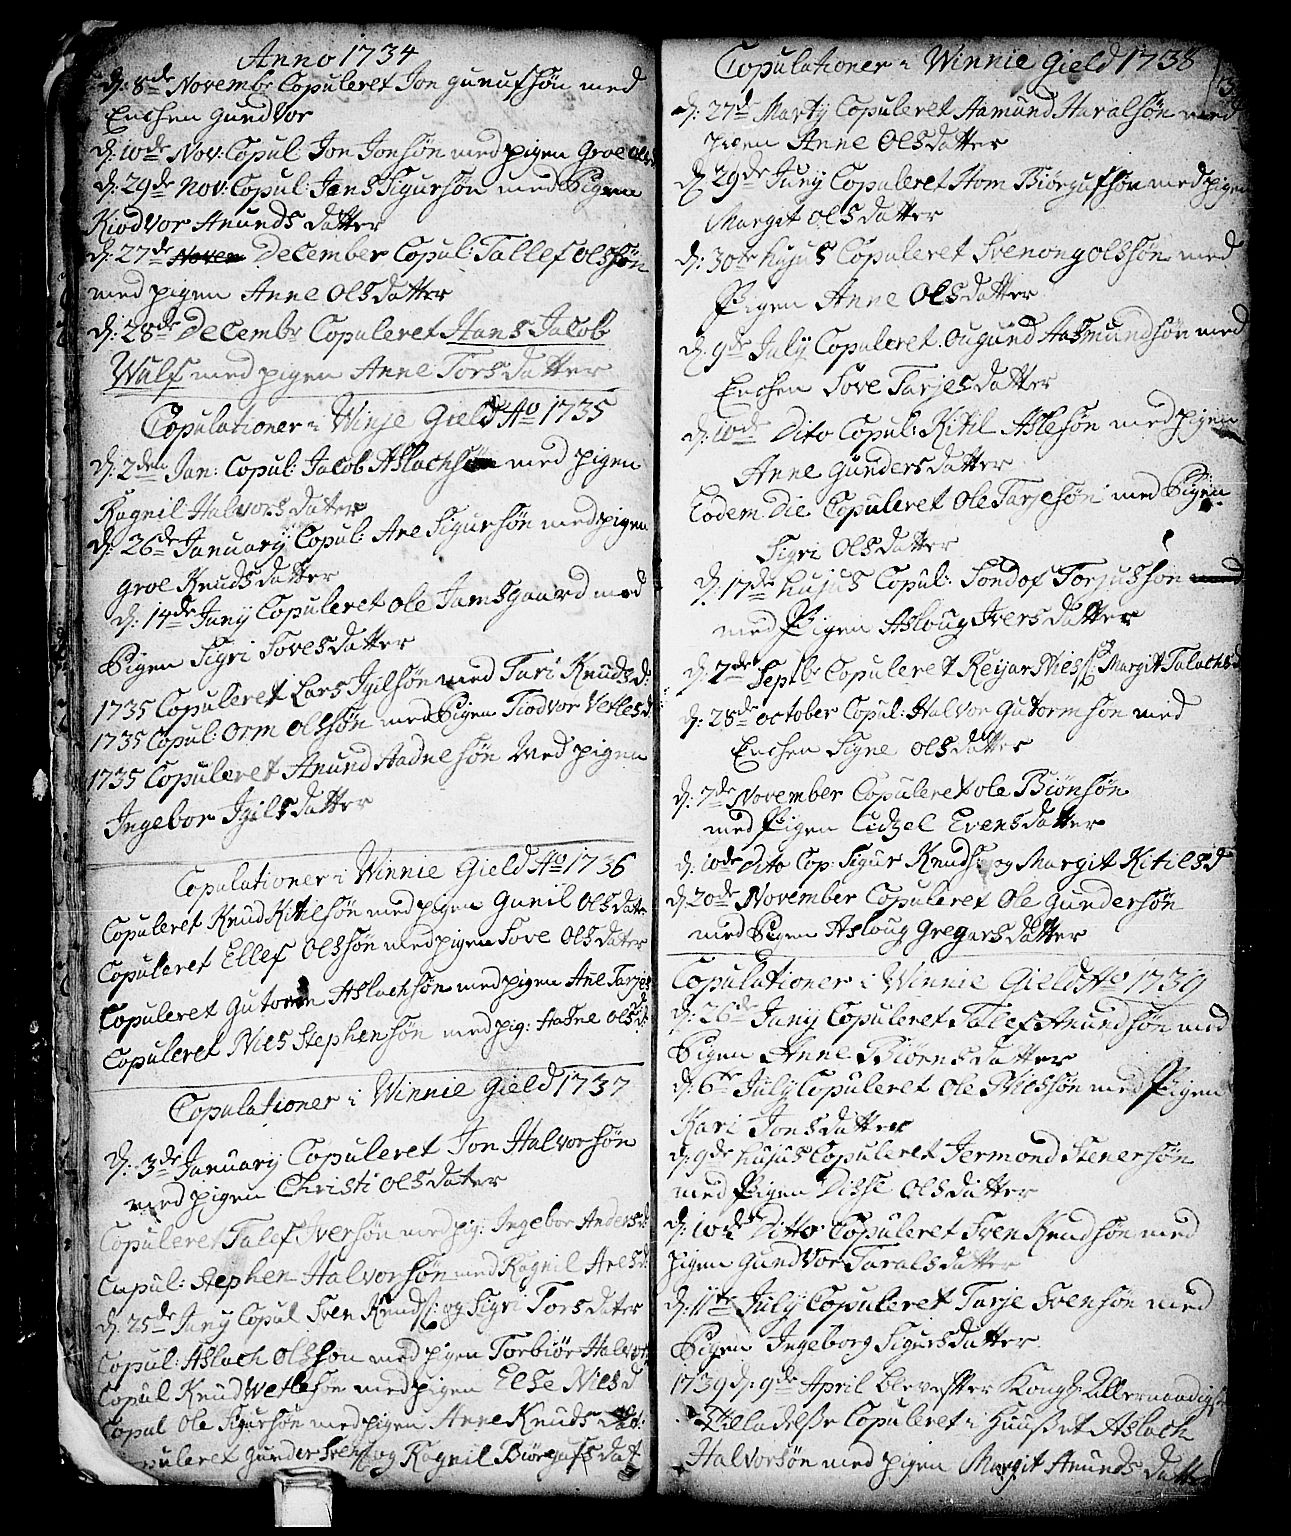 Anno 1734
d: 8de Novembr Copuleret Jon gunufsøn med
Enchen gundvor
d: 10de Nov: Copul: Jon Jonsøn med pigen Groe
d: 29de Nov: Copul: Jens Sigursøn med Pigen
Kiodvor Anunds datter
d: 27de Novem December Copul: Tallef olssøn
med pigen Anne Olsdatter
d: 28de Decembr Copuleret Hans Jacob
Wulf med pigen Anne Torsdatter
Copulationer i Winje Gield Ao 1735
d: 2den Jan: Copul: Jacob Aslachsøn med pigen
Ragnil Halvorsdatter
d: 26de January Copul: Are Sigursøn med pigen
groe Knudsdatter
d: 14de Juny Copuleret ole Jamsgaard med
Pigen Sigri Tovesdatter
1735 Copuleret Lars Jgilsøn med Tari Knudsd:
1735 Copul: Orm Olssøn med Pigen Tiodvor Vetlesd
1735 Copuleret Anund Aadnesøn Med pigen
Ingebor Jgilsdatter
Copulationer i Winnie Gield Ao 1736
Copuleret Knud Kittelsøn med pigen Gunil Olsdatr
Copuleret Ellef Olssøn med pigen Tove Olsdater
Copuleret Gutorm Aslachsøn med pigen Anne Tarjes
Copuleret Niels Stephensøn med pig: Aasne olsd:
Copulationer i Winnie Gield 1737
d: 3de January Copuleret Jon Halvorsøn
med pigen Christi Olsdater
Copuleret Talef Iversøn med pig: Ingebor Andersd:
Cupul: Stephen Halvorsøn med Ragnil Aresd:
d: 25de Juny Copul Sven Knuds: og Sigri Torsdater
Copul: Aslach Olsson med pigen Torbiør Halvor
Copul Knud Wetlesøn med pigen Else Nielsd
Copul Ole Sigursøn med pigen Anne Knuds dat:
puleret Gunder Svens: og Ragnil Biørgufsdat
Copulationer i Winnie Gield 1738
d: 27de Marty Copuleret Aamund Haralsøn med
pigen Anne Olsdatter
d: 29de Juny Copuleret Hom Biørgufsøn med pigen
Margit Olsdatter
d: 30te hujus Copuleret Svenong olssøn med
Pigen Anne Olsdatter
d: 9de July Copuleret Ougund Aasmundsøn med
Enchen Tove Tarjesdatter
d: 10de Dito Copul: Kittil Aslesøn med pigen
Anne Gundersdatter
Eodem Die Copuleret Ole Tarjesøn med Pigen
Sigri Olsdatter
d: 17de hujus Copul: Tondof Torjussøn med
med Pigen Asloug Iversdatter
d: 2de Septbr Copuleret Reijar Niess: og Margit Talachsd
d: 28de october Copul: Halvor Gutormsøn med
Enchen Signe olsdatter
d: 7de November Copuleret ole Biønsøn
med Pigen Lidzel Evensdatter
d: 10de Dito Cop: Sigur Knuds: og Margit Kitilsd
d: 20de November Copuleret Ole Gundersøn
med Pigen Asloug Gregarsdatter
Copulationer i Winnie Gield Ao 1739
d: 26de Juny Copuleret Talef Anundsøn med
Pigen Anne Biørnsdatter
d: 6te July Copuleret Ole Nielssøn med Pigen
Kari Jonsdatter
d: 9de hujus Copuleret Jermond Stenersøn
med Pigen Disse Olsdatter
d: 10de Ditto Copuleret Sven Knudsøn med
pigen Gundvor Taralsdatter
d: 11te July Copuleret Tarje Svensøn med
Pigen Ingeborg Sigursdatter
1739 d: 9de April blev efter Kongl: Allernaadigste
Tilladelse Copuleret i Huuset Aslach
Halvorsøn med pigen Margit Anunds datter